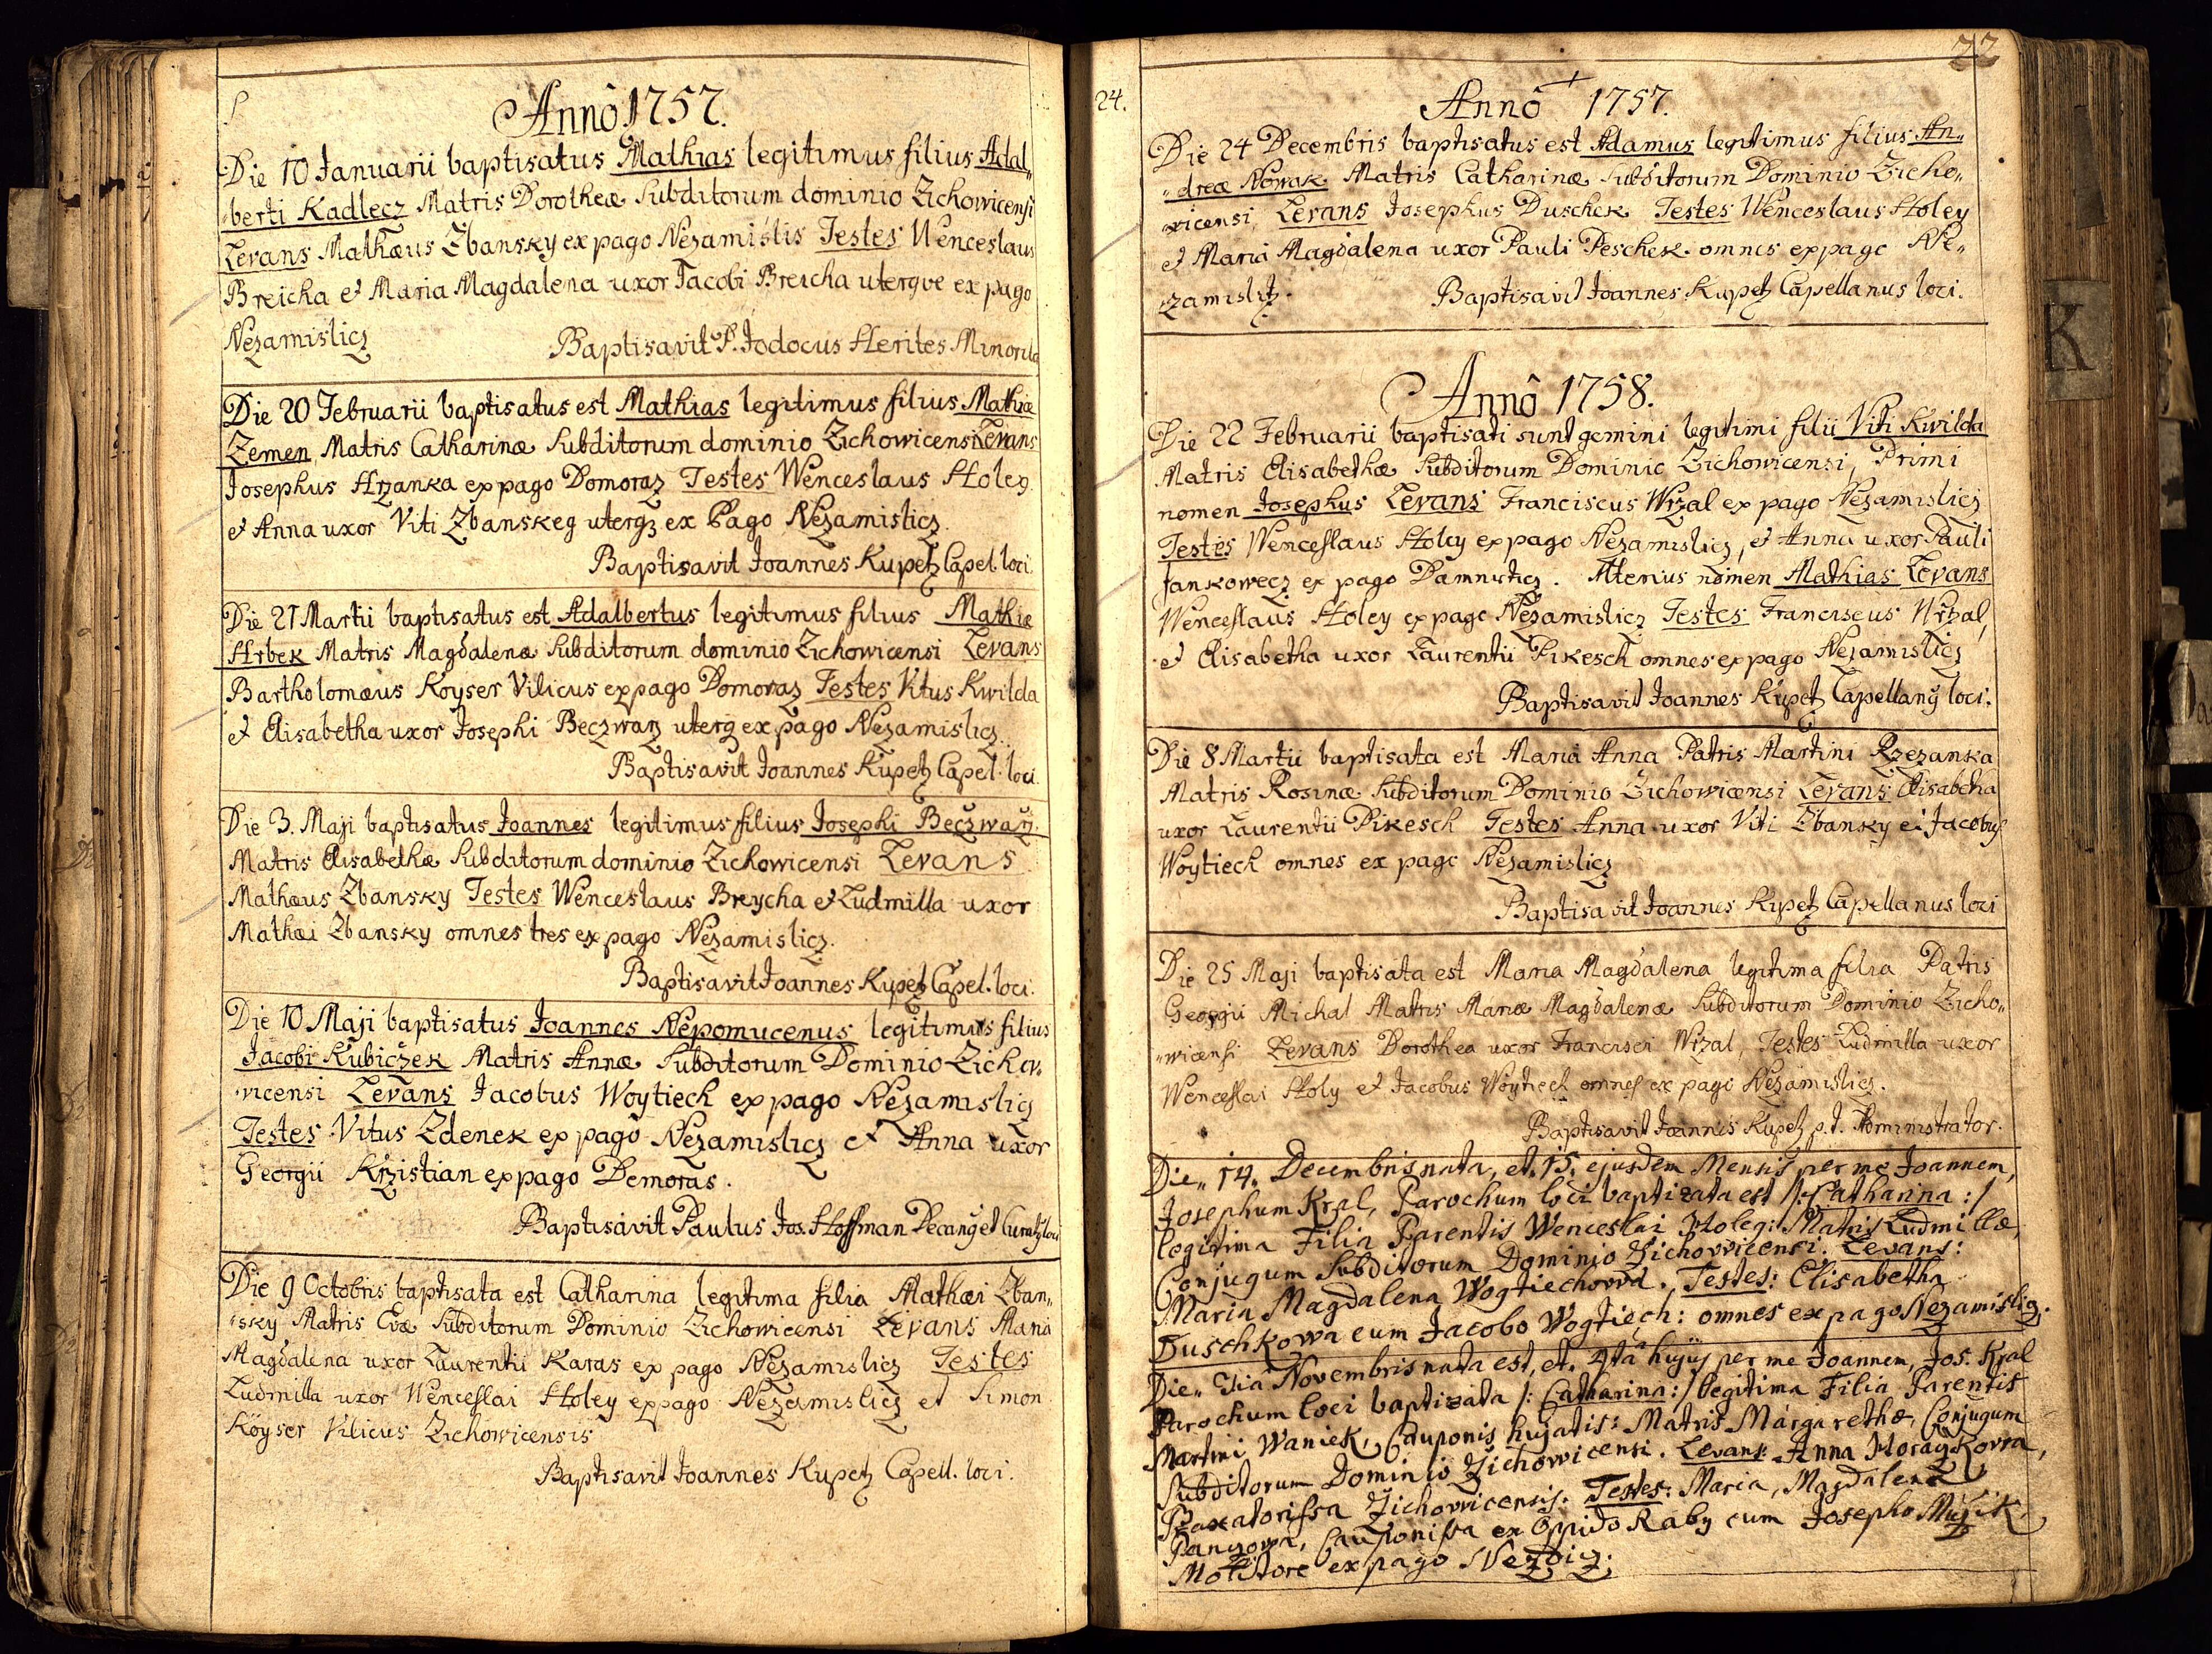 Annô 1757.
Die 10 Januarii baptisatus Mathias legitimus filius Adal„
„berti Kadlecz Matris Dorotheæ Subditorum dominio Zichowicensi
Levans Mathæus Zbansky ex pago Nezamislis Testes Wenceslaus
Breicha et Maria Magdalena uxor Jacobi Breicha uterqve ex pago
Nezamislicz Baptisavit P. Jodocus Herites Minorita
Die 20 Februarii baptisatus est Mathias legitimus filius Mathiæ
Zemen Matris Catharinæ Subditorum dominio Zichowicensi Levans
Josephus Hrzanka ex pago Domoraz Testes Wenceslaus Holey
et Anna uxor Viti Zbanskeg uterqz ex Pago Nezamislicz.
Baptisavit Joannes Kupetz Capel. loci.
Die 21 Martii baptisatus est Adalbertus legitimus filius Mathiæ
Hrbek Matris Magdalenæ Subditorum dominio Zichowicensi Levans
Bartholomæus Koyser Vilicus ex pago Domoraz Testes Vitus Kwilda
et Elisabetha uxor Josephi Beczwarz uterq ex pago Nezamislicz.
Baptisavit Joannes Kupetz Capel. loci.
Die 3. Maji baptisatus Joannes legitimus filius Josephi Beczwarz.
Matris Elisabethæ Subditorum dominio Zichowicensi Levans
Mathæus Zbansky Testes Wenceslaus Breycha et Ludmilla uxor
Mathæi Zbansky omnes tres ex pago Nezamislicz.
Baptisavit Joannes Kupetz Capel. loci.
Die 10 Maji baptisatus Joannes Nepomucenus legitimus filius
Jacobi Kubiczek Matris Annæ Subditorum Dominio Zicho„
„vicensi Levans Jacobus Woytiech ex pago Nezamislicz
Testes Vitus Zdenek ex pago Nezamislicz et Anna uxor
Georgii Krzistian ex pago Demoras.
Baptisavit Paulus Jos. Hoffman Decanq et Curatq loci
Die 9 Octobris baptisata est Catharina legitima filia Mathæi Zban„
„sky Matris Evæ Subditorum Dominio Zichowicensi Levans Maria
Magdalena uxor Laurentii Karas ex pago Nezamislicz Testes
Ludmilla uxor Wenceslai Holey ex pago Nezamislicz et Simon
Köyser Vilicus Zichowicensis
Baptisavit Joannes Kupetz Capell. loci.
24.
22
Annô 1757.
Die 24 Decembris baptisatus est Adamus legitimus filius An„
„dreæ Nowak Matris Catharinæ Subditorum Dominio Zicho„
wicensi, Levans Josephus Duschek Testes Wenceslaus Holey
et Maria Magdalena uxor Pauli Peschek omnes ex pago Ne„
zamislitz. Baptisavit Joannes Kupetz Capellanus loci.
Annô 1758.
Die 22 Februarii baptisati sunt gemini legitimi filii Viti Kwilda
Matris Elisabethæ Subditorum Dominio Zichowicensi, Primi
nomen Josephus Levans Franciscus Wrzal ex pago Nezamislicz
Testes Wenceslaus Holey ex pago Nezamislicz, et Anna uxor Pauli
Jankowecz ex pago Damnisticz. Alterius nomen Mathias Levans
Wenceslaus Holey ex pago Nezamislicz Testes Franciscus Wrzal,
et Elisabetha uxor Laurentii Pikesch omnes ex pago Nezamislicz
Baptisavit Joannes Kupetz Capellanq loci.
Die 8 Martii baptisata est Maria Anna Patris Martini Rzezanka
Matris Rosinæ Subditorum Dominio Zichowicensi Levans Elisabetha
uxor Laurentii Pikesch Testes Anna uxor Viti Zbansky et Jacobus
Woytiech omnes ex pago Nezamislicz
Baptisavit Joannes Kupetz Capellanus loci
Die 25 Maji baptisata est Maria Magdalena legitima filia Patris
Georgii Michal Matris Mariæ Magdalenæ Subditorum Dominio Zicho„
„wicensi Levans Dorothea uxor Francisci Wrzal, Testes Ludmilla uxor
Wenceslai Holy et Jacobus Woytiech omnes ex pago Nezamislicz.
Baptisavit Joannes Kupetz p. t. Administrator.
Die„ 14„ Decembris nata, et. 15. ejusdem Mensis per me Joannem,
Josephum Kral, Parochum loci baptizata est /: Catharina :/
legitima Filia Parentis Wenceslai Holeg: Matris Ludmillæ,
Conjugum Subditorum Dominio Zichowicensi. Levans:
Maria Magdalena Wogtiechowa. Testes: Elisabetha
Duschkowa cum Jacobo Wogtiech: omnes ex pago Nezamisliz.
Die„ 3ia Novembris nata est, et. 4ta hujus per me Joannem, Jos. Kral
Parochum loci baptizata /: Catharina :/ legitima Filia Parentis
Martini Waniek, Cauponis hujatis: Matris Margarethæ, Conjugum
Subditorum Dominio Zichowicensi. Levans Anna Horaykowa,
Braxatorissa Zichowicensis: Testes: Maria, Magdalena
Panzowa, Cauponissa ex Oppido Raby cum Josepho Muzik,
Molitore ex pago Nezdicz.